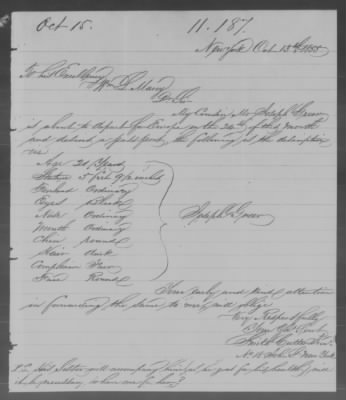 Oct 15.
11.187.
New York Oct 13th 1855
To his Excellency
Wm L Marcy
My Cousin, Mr Joseph
is about to depart for Europe on the 20th of this month
and desires a passport, the following is the description
viz
Age 21 Years
Stature 5 feet 9 1/2 inches
Forehead Ordinary
Eyes Black
Nose Ordinary
Mouth Ordinary
Chin round
Hair dark
Complexion Fair
Face Round
Joseph
Your early and kind attention
in forwarding the same to me, will oblige
Very Respectfully
Your
No 18 John St New York
P.S. His Sister will accompany him,
is it necessary to have one for her?